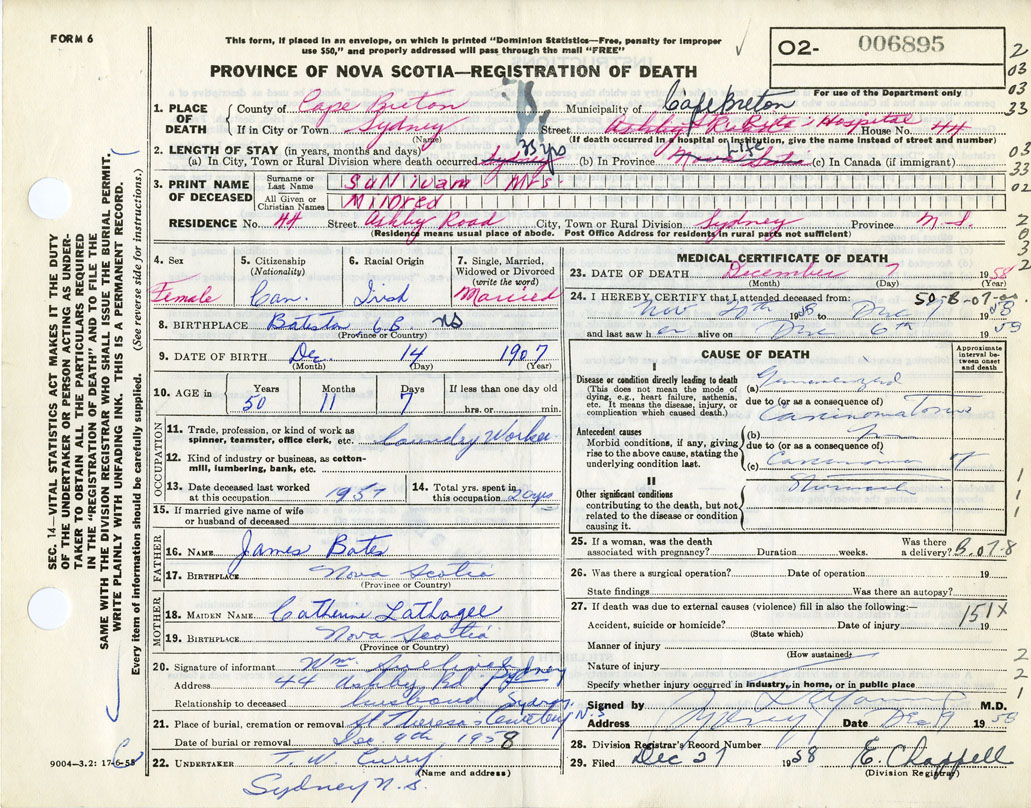 FORM 6
This form, if placed in an envelope, on which is printed "Dominion Statistics—Free, penalty for improper
use $50," and properly addressed will pass through the mail "FREE"
O2- 006895
For use of the Department only
PROVINCE OF NOVA SCOTIA—REGISTRATION OF DEATH
1. PLACE OF DEATH
County of Cape Breton Municipality of Cape Breton
If in City or Town Sydney Street Ashby Hospital House No. 44
(Name) (If death occurred in a hospital or institution, give the name instead of street and number)
2. LENGTH OF STAY (in years, months and days)
(a) In City, Town or Rural Division where death occurred Sydney (b) In Province Life (c) In Canada (if immigrant)
3. PRINT NAME OF DECEASED
Surname or Last Name Sullivan Mrs.
All Given or Christian Names Mildred
RESIDENCE No. 44 Street Ashby Road City, Town or Rural Division Sydney Province N.S.
(Residence means usual place of abode. Post Office Address for residents in rural parts not sufficient)
4. Sex
Female
5. Citizenship
(Nationality)
Can.
6. Racial Origin
Irish
7. Single, Married, Widowed or Divorced
(write the word)
Married
8. BIRTHPLACE C.B. NS
(Province or Country)
9. DATE OF BIRTH Dec. 14 1907
(Month) (Day) (Year)
10. AGE in
Years Months Days If less than one day old
50 11 7 hrs. or min.
OCCUPATION
11. Trade, profession, or kind of work as
spinner, teamster, office clerk, etc. Laundry Worker
12. Kind of industry or business, as cotton-
mill, lumbering, bank, etc.
13. Date deceased last worked
at this occupation 1957
14. Total yrs. spent in
this occupation
15. If married give name of wife
or husband of deceased
FATHER
16. NAME James Bates
17. BIRTHPLACE Nova Scotia
(Province or Country)
MOTHER
18. MAIDEN NAME Catherine
19. BIRTHPLACE Nova Scotia
(Province or Country)
20. Signature of informant Wm. Sullivan Sydney
Address 44 Ashby Rd.
Relationship to deceased husband Sydney
21. Place of burial, cremation or removal St. Theresa's Cemetery N.S
Date of burial or removal Dec. 9th 1958
22. UNDERTAKER T. W. Curry
(Name and address)
Sydney N.S.
9004—3.2: 17-6-55
MEDICAL CERTIFICATE OF DEATH
23. DATE OF DEATH December 7 1958
(Month) (Day)
24. I HEREBY CERTIFY that I attended deceased from: 50-B-07-
Nov to Dec 7 1958
and last saw her alive on Dec 6th 1958
CAUSE OF DEATH
Approximate interval between onset and death
I
Disease or condition directly leading to death
(This does not mean the mode of
dying, e.g., heart failure, asthenia,
etc. It means the disease, injury, or
complication which caused death.)
(a) Generalized
due to (or as a consequence of)
Carcinomatosis
Antecedent causes
Morbid conditions, if any, giving
rise to the above cause, stating the
underlying condition last.
(b)
due to (or as a consequence of)
(c) Carcinoma of
Stomach
II
Other significant conditions
contributing to the death, but not
related to the disease or condition
causing it.
25. If a woman, was the death
associated with pregnancy? Duration weeks. Was there a delivery? B.07-8
26. Was there a surgical operation? Date of operation 19
State findings Was there an autopsy?
27. If death was due to external causes (violence) fill in also the following:—
151X
Accident, suicide or homicide? Date of injury 19
(State which)
Manner of injury
(How sustained)
Nature of injury
Specify whether injury occurred in industry, in home, or in public place
Signed by M.D.
Address Sydney Date Dec 9 1958
28. Division Registrar's Record Number
29. Filed Dec 27 1958 E. Chappell
(Division Registrar)
SEC. 14—VITAL STATISTICS ACT MAKES IT THE DUTY
OF THE UNDERTAKER OR PERSON ACTING AS UNDER-
TAKER TO OBTAIN ALL THE PARTICULARS REQUIRED
IN THE "REGISTRATION OF DEATH" AND TO FILE THE
SAME WITH THE DIVISION REGISTRAR WHO SHALL ISSUE THE BURIAL PERMIT.
WRITE PLAINLY WITH UNFADING INK. THIS IS A PERMANENT RECORD.
Every item of information should be carefully supplied. (See reverse side for instructions.)
2
03
03
33
03
33
02
2
0
3
2
1
1
1
2
2
1